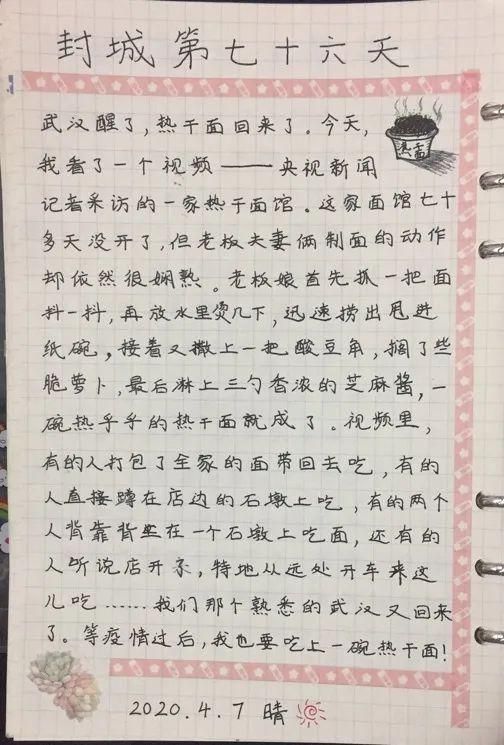 封城第七十六天
武汉醒了，热干面回来了。今天，
热干面
我看了一个视频——央视新闻
记者采访的一家热干面馆。这家面馆七十
多天没开了，但老板夫妻俩制面的动作
却依然很娴熟。老板娘首先抓一把面
抖一抖，再放水里烫几下，迅速捞出甩进
纸碗，接着又撒上一把酸豆角，搁了些
脆萝卜，最后淋上三勺香浓的芝麻酱，一
碗热乎乎的热干面就成了。视频里，
有的人打包了全家的面带回去吃，有的
人直接蹲在店边的石墩上吃，有的两个
人背靠背坐在一个石墩上吃面，还有的
人听说店开了，特地从远处开车来这
儿吃……我们那个熟悉的武汉又回来
了。等疫情过后，我也要吃上一碗热干面！
2020.4.7 晴